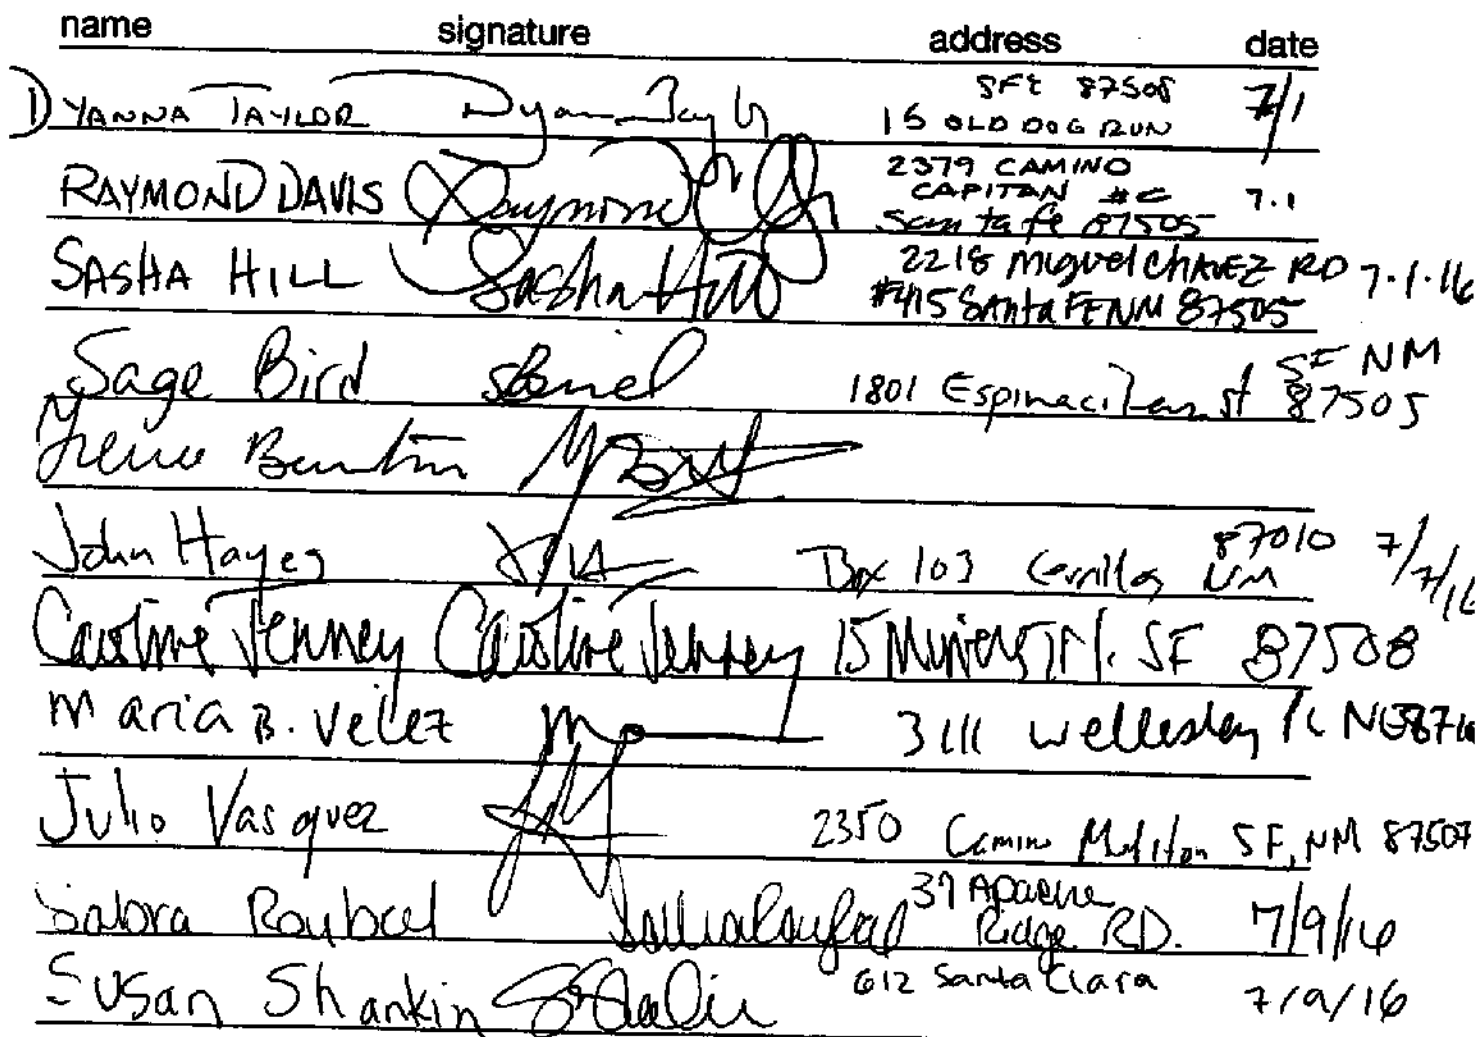 name signature address date
DYANNA TAYLOR Dyanna Taylor SFE 87508 7/1
15 OLD DOG RUN
RAYMOND DAVIS Raymond 2379 CAMINO
CAPITAN #C 7.1
Santa fe 87505
SASHA HILL Sasha Hill 2218 Miguel CHAVEZ RD 7.1.16
#415 Santa FE NM 87505
Sage Bird 1801 Espinacitas st SF NM
87505
John Hayes Box 103 Cerrillos NM 87010 7/7/16
Caroline Jenney Caroline Jenney 15 Miners Trl. SF 87508
Maria B. Velez 3111 Wellesley NE
Julio Vasquez 2350 Camino SF, NM 87507
Sabra Roybal 37 Apache
Ridge RD. 7/9/16
Susan Shankin 612 Santa Clara 7/9/16